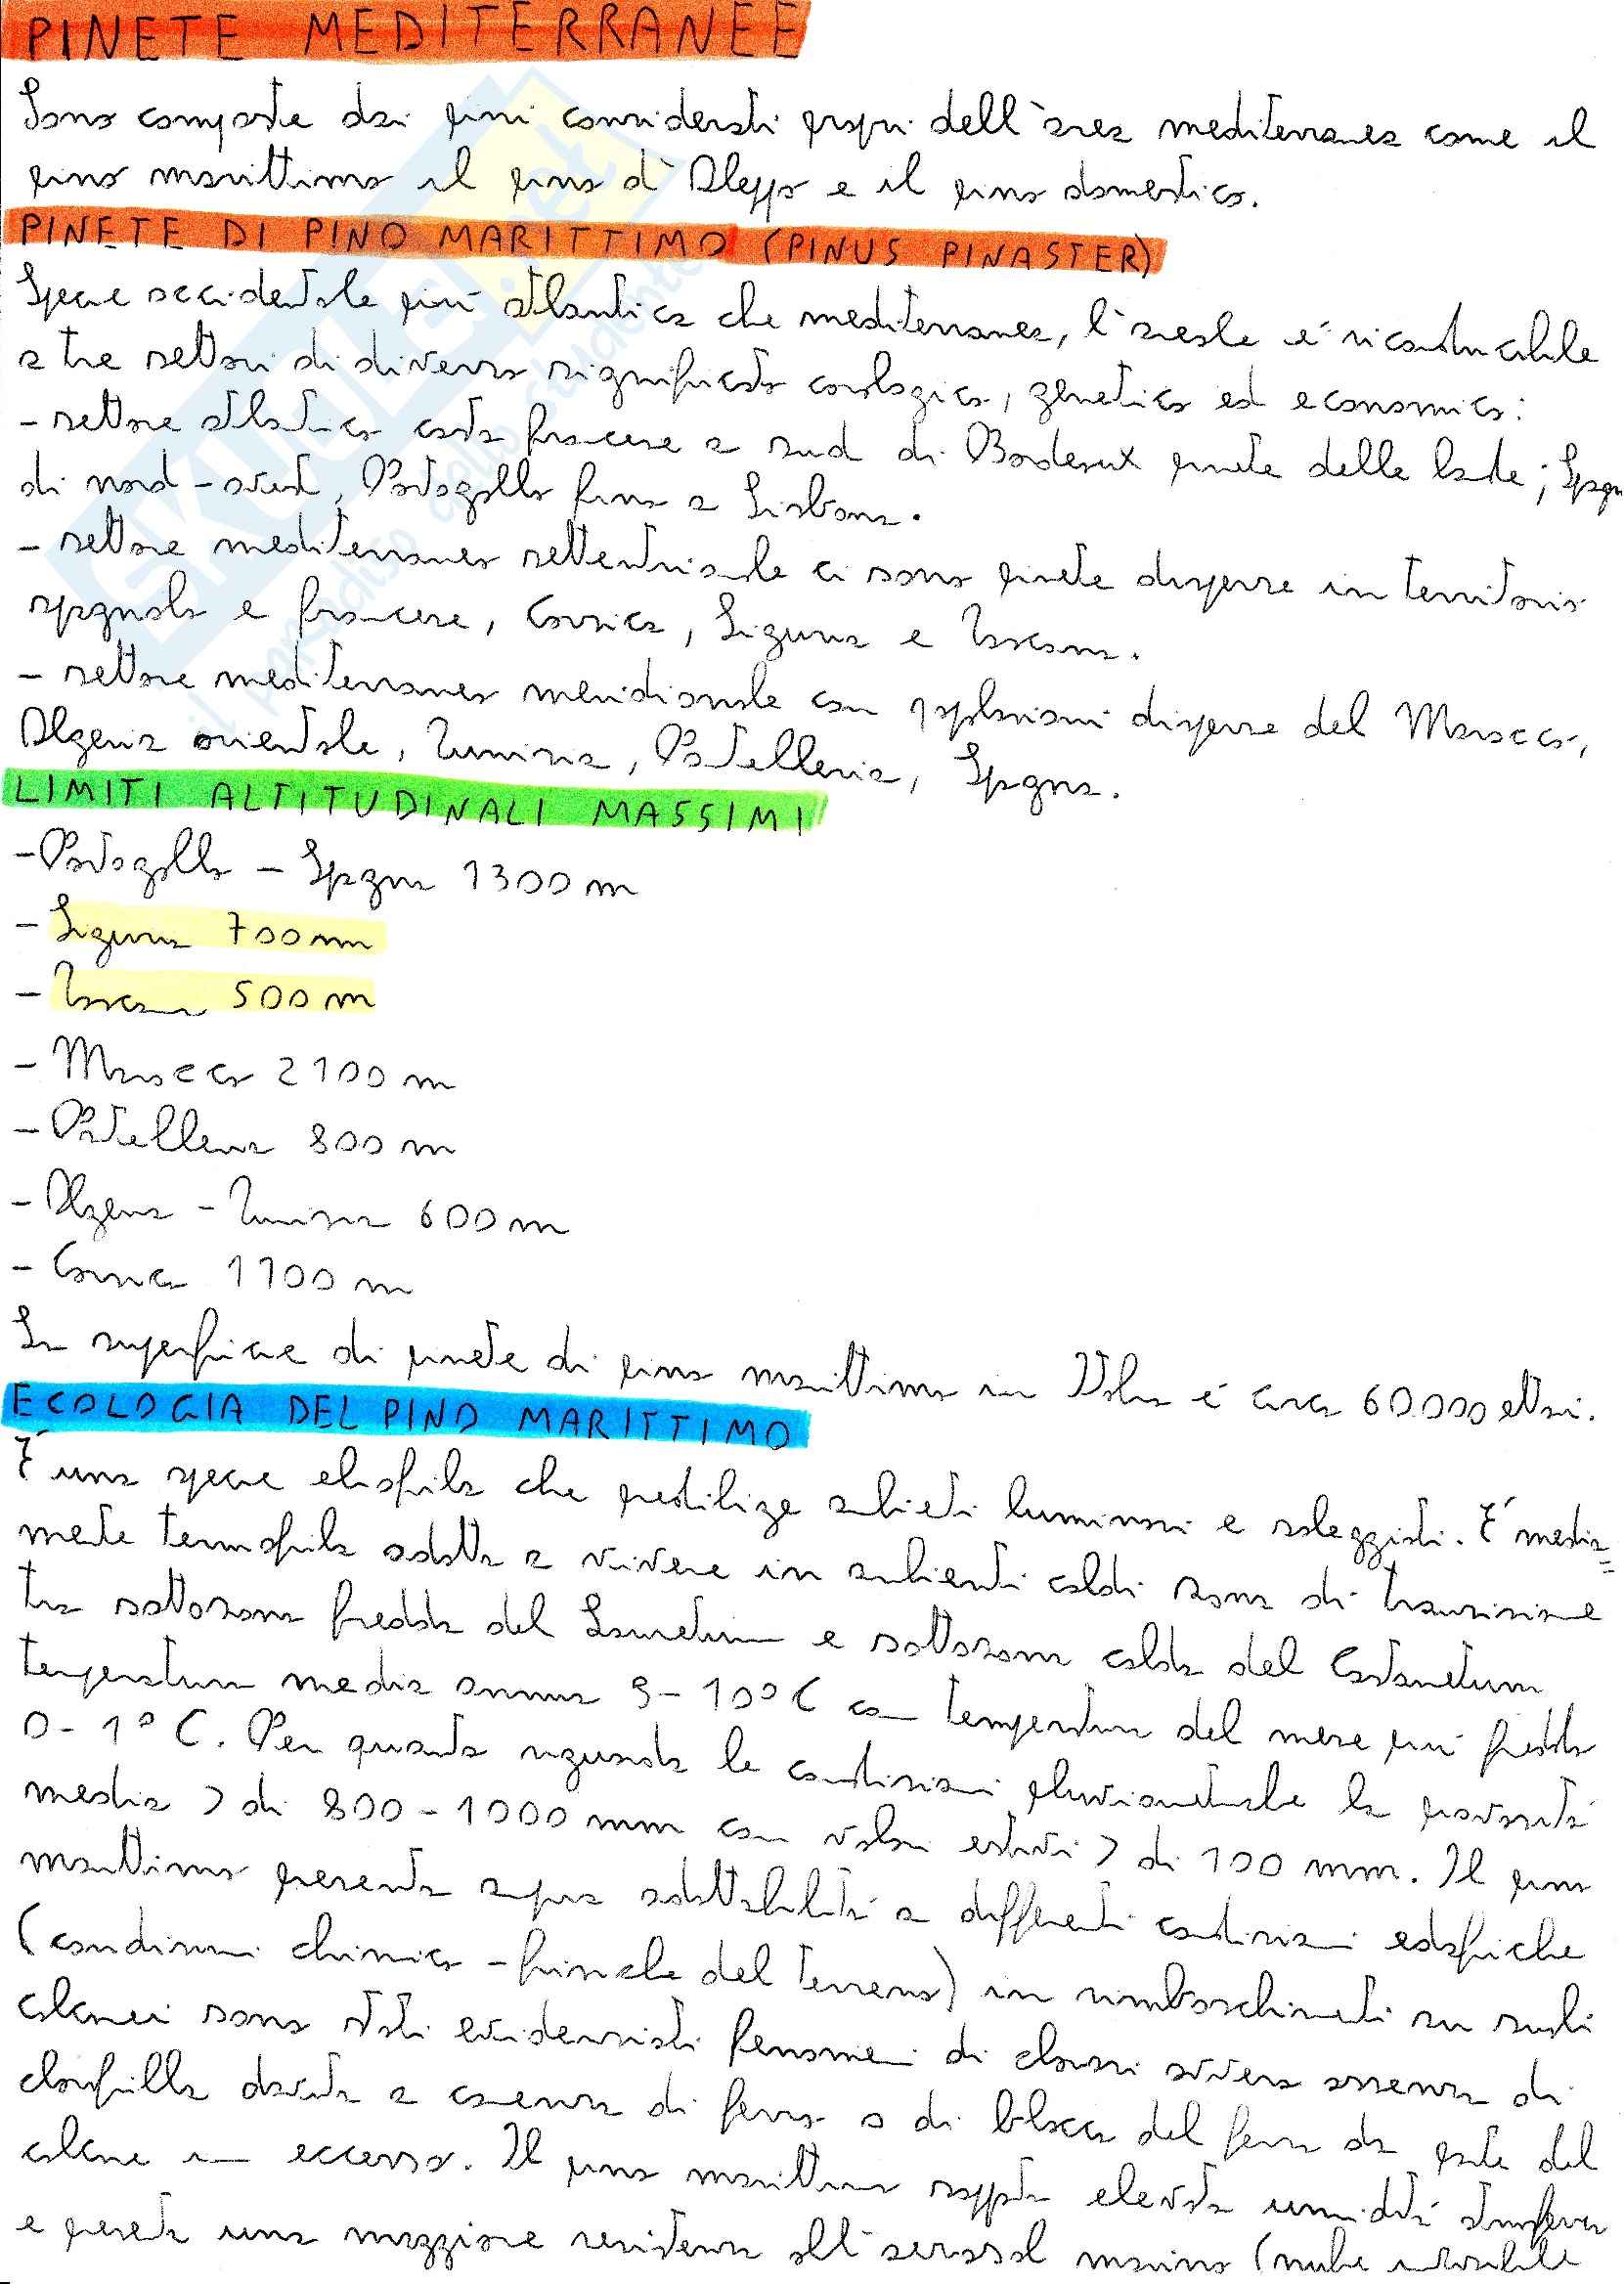 PINETE MEDITERRANEE
Sono composte dai pini considerati propri dell'area mediterranea come il
pino marittimo il pino d'Aleppo e il pino domestico.
PINETE DI PINO MARITTIMO (PINUS PINASTER)
Specie occidentale più atlantica che mediterranea, l'areale é riconducibile
a tre settori di diverso significato corologico, genetico ed economico:
- settore atlantico costa francese a sud di Bordeaux pinete delle lande; Spagna
di nord-ovest, Portogallo fino a Lisbona.
- settore mediterraneo settentrionale ci sono pinete disperse in territorio
spagnolo e francese, Corsica, Liguria e Toscana.
- settore mediterraneo meridionale con popolazioni disperse del Marocco,
Algeria orientale, Tunisia, Pantelleria, Spagna.
LIMITI ALTITUDINALI MASSIMI
- Portogallo - Spagna 1300 m
- Liguria 700 m
- Toscana 500 m
- Marocco 2100 m
- Pantelleria 800 m
- Algeria - Tunisia 600 m
- Corsica 1100 m
La superficie di pinete di pino marittimo in Italia é circa 60.000 ettari.
ECOLOGIA DEL PINO MARITTIMO
É una specie eliofila che predilige ambienti luminosi e soleggiati. É media=
mente termofila adatta a vivere in ambienti caldi zona di transizione
tra sottozona fredda del Lauretum e sottozona calda del Castanetum
temperatura media annua 9-10°C con temperatura del mese più freddo
0-1°C. Per quanto riguarda le condizioni pluviometriche la piovosità
media > di 800-1000 mm con valori estivi > di 100 mm. Il pino
marittimo presenta ampia adattabilità a differenti condizioni edafiche
(condizioni chimico-fisiche del terreno) in rimboschimenti su suoli
calcarei sono stati evidenziati fenomeni di clorosi ovvero assenza di
clorofilla dovuta a carenza di ferro o di blocco del ferro da parte del
calcare in eccesso. Il pino marittimo sopporta elevata umidità atmosferica
e presenta una maggiore resistenza all'aerosol marino (nube instabile
SKUOLA.net
il paradiso dello studente